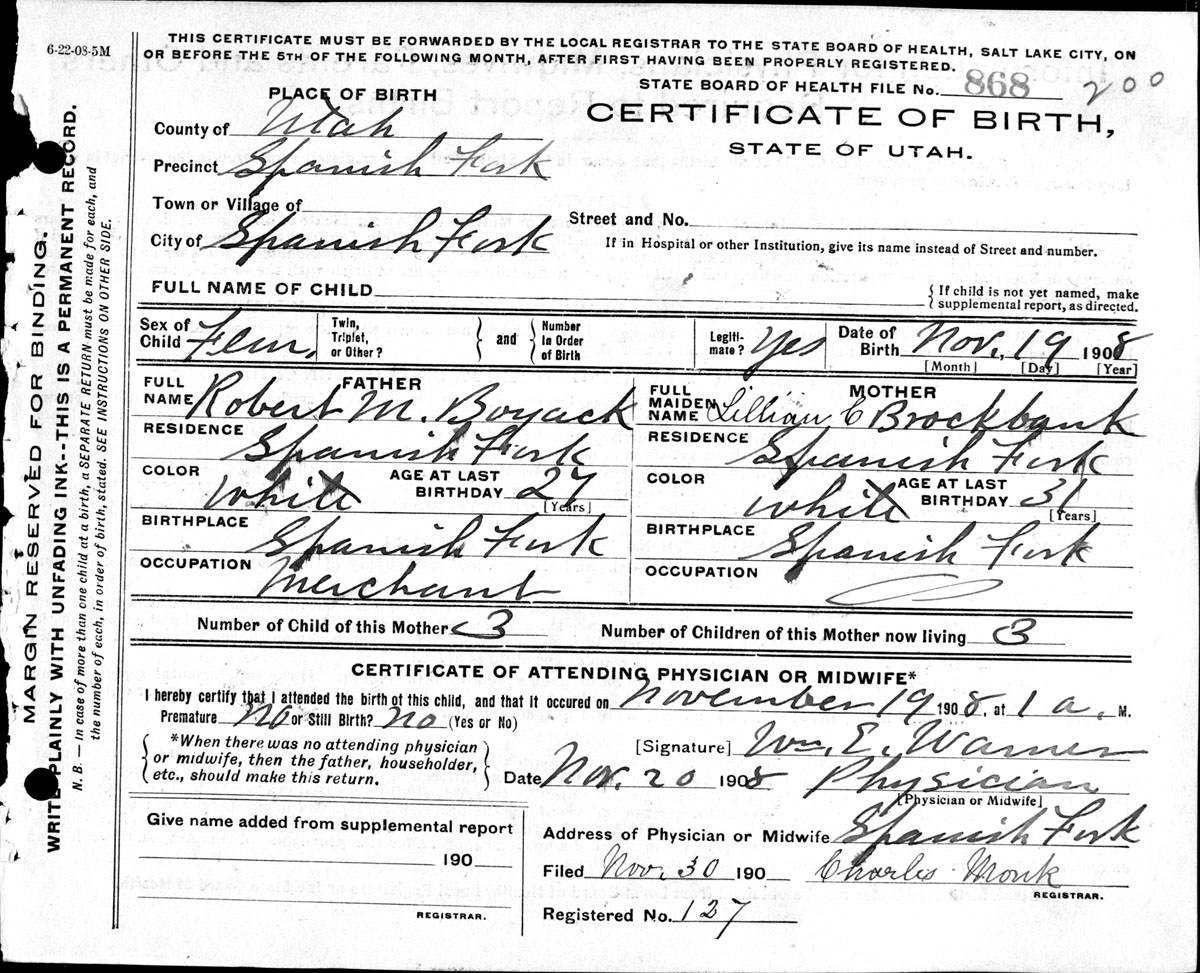 6-22-08-5M
THIS CERTIFICATE MUST BE FORWARDED BY THE LOCAL REGISTRAR TO THE STATE BOARD OF HEALTH, SALT LAKE CITY, ON
OR BEFORE THE 5TH OF THE FOLLOWING MONTH, AFTER FIRST HAVING BEEN PROPERLY REGISTERED.
STATE BOARD OF HEALTH FILE No. 868 200
PLACE OF BIRTH
CERTIFICATE OF BIRTH,
STATE OF UTAH.
County of Utah
Precinct Spanish Fork
Town or Village of
Street and No.
City of Spanish Fork
If in Hospital or other Institution, give its name instead of Street and number.
FULL NAME OF CHILD
{ If child is not yet named, make
supplemental report, as directed.
Sex of Child Fem. Twin, Triplet, or Other? } and { Number In Order of Birth Legiti-mate? Yes Date of Birth Nov. 19 1908
[Month] [Day] [Year]
FATHER
FULL NAME Robert M. Boyack
RESIDENCE Spanish Fork
COLOR White AGE AT LAST BIRTHDAY 27
[Years]
BIRTHPLACE Spanish Fork
OCCUPATION Merchant
MOTHER
FULL MAIDEN NAME Lillian C Brockbank
RESIDENCE Spanish Fork
COLOR White AGE AT LAST BIRTHDAY 31
[Years]
BIRTHPLACE Spanish Fork
OCCUPATION
Number of Child of this Mother 3 Number of Children of this Mother now living 3
CERTIFICATE OF ATTENDING PHYSICIAN OR MIDWIFE*
I hereby certify that I attended the birth of this child, and that it occured on November 19 1908, at 1 a. M.
Premature No or Still Birth? No (Yes or No)
*When there was no attending physician
or midwife, then the father, householder,
etc., should make this return.
[Signature] Wm. E. Warner
Date Nov. 20 1908 Physician
[Physician or Midwife]
Give name added from supplemental report
190
REGISTRAR.
Address of Physician or Midwife Spanish Fork
Filed Nov. 30 190 Charles Monk
REGISTRAR.
Registered No. 127
MARGIN RESERVED FOR BINDING.
WRITE PLAINLY WITH UNFADING INK--THIS IS A PERMANENT RECORD.
N. B. — In case of more than one child at a birth, a SEPARATE RETURN must be made for each, and
the number of each, in order of birth, stated. SEE INSTRUCTIONS ON OTHER SIDE.